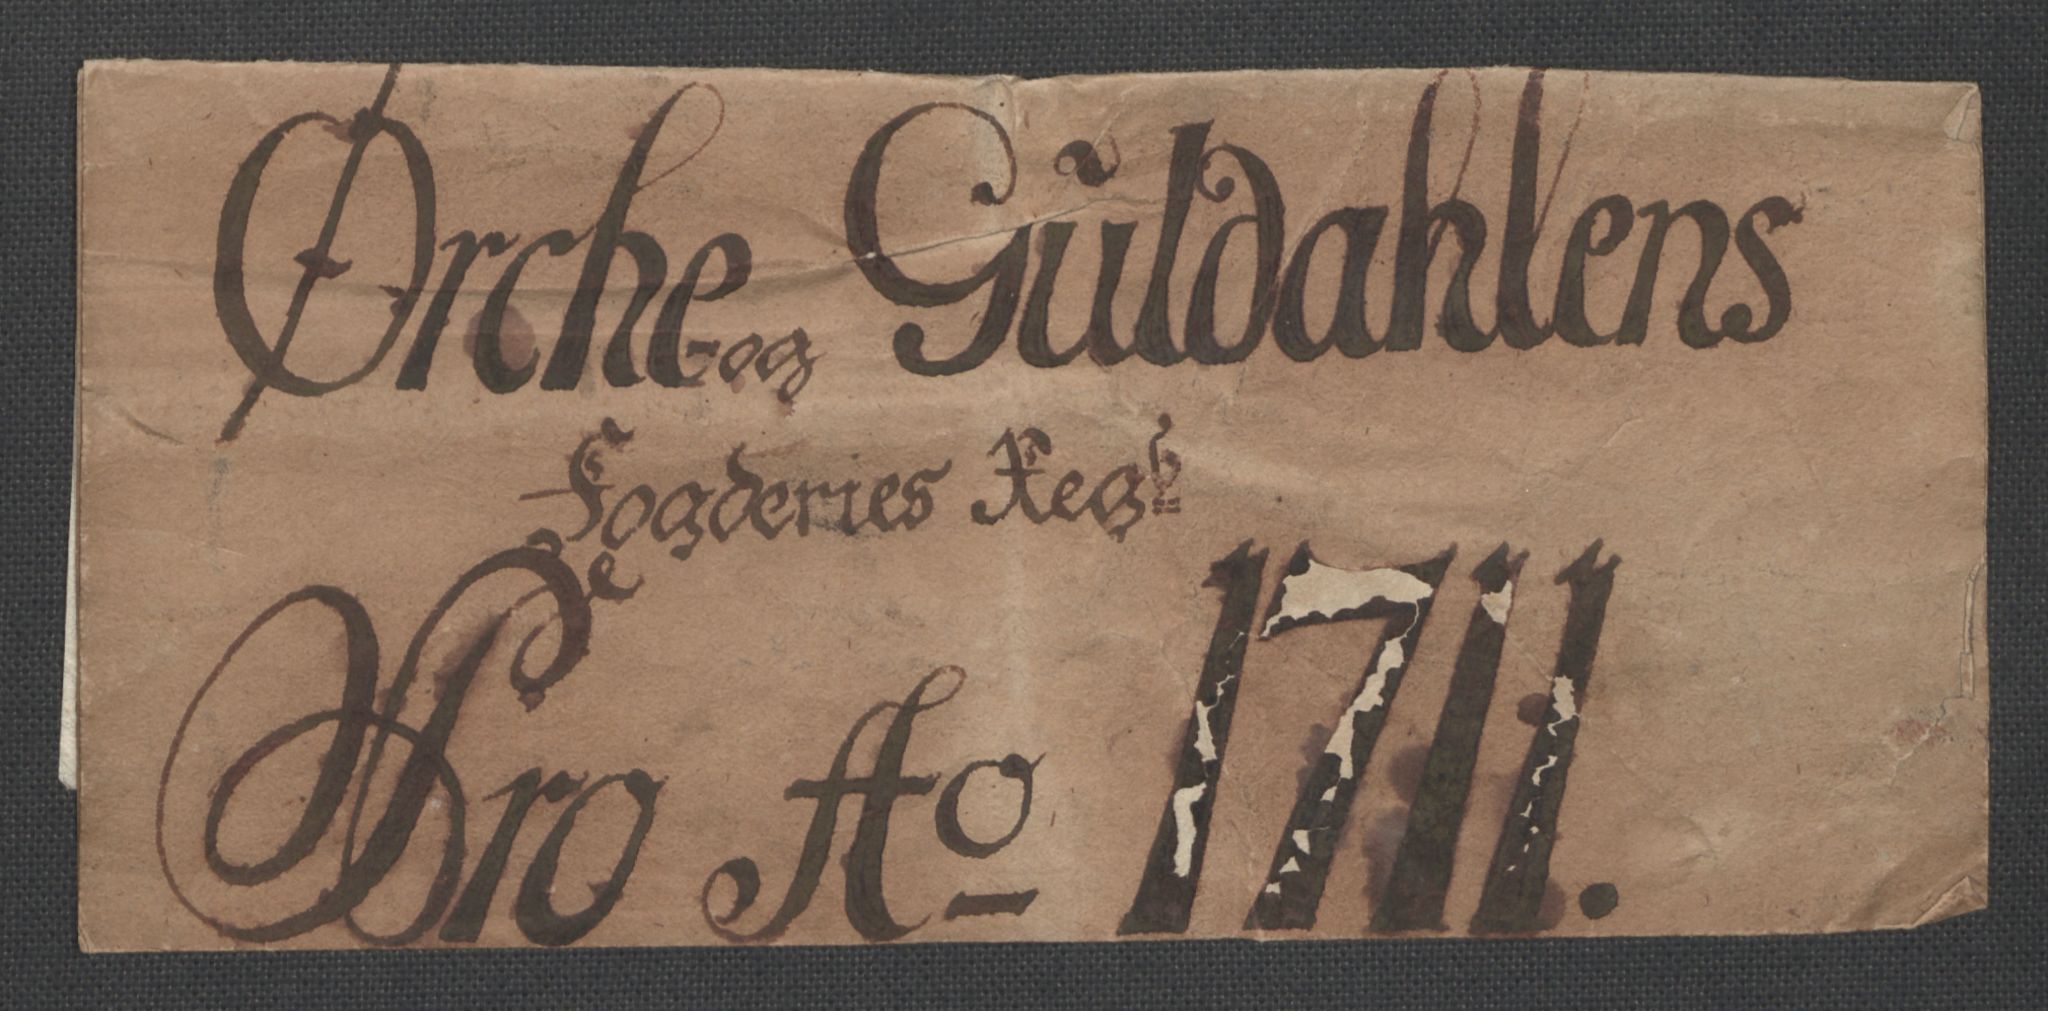 Ørche og Güldahlens
Fogderies Regb
e
Pro Ao 1711.